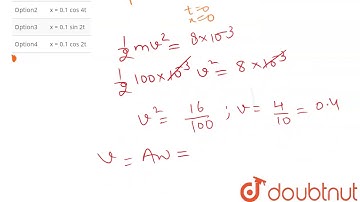 Option2 x = 0.1 cos 4t
Option3 x = 0.1 sin 2t
Option4 x = 0.1 cos 2t
t=0
x=0
1/2 mv² = 8×10⁻³
1/2 100×10⁻³ v² = 8×10⁻³
v² = 16/100 ; v = 4/10 = 0.4
v = Aω =
doubtnut